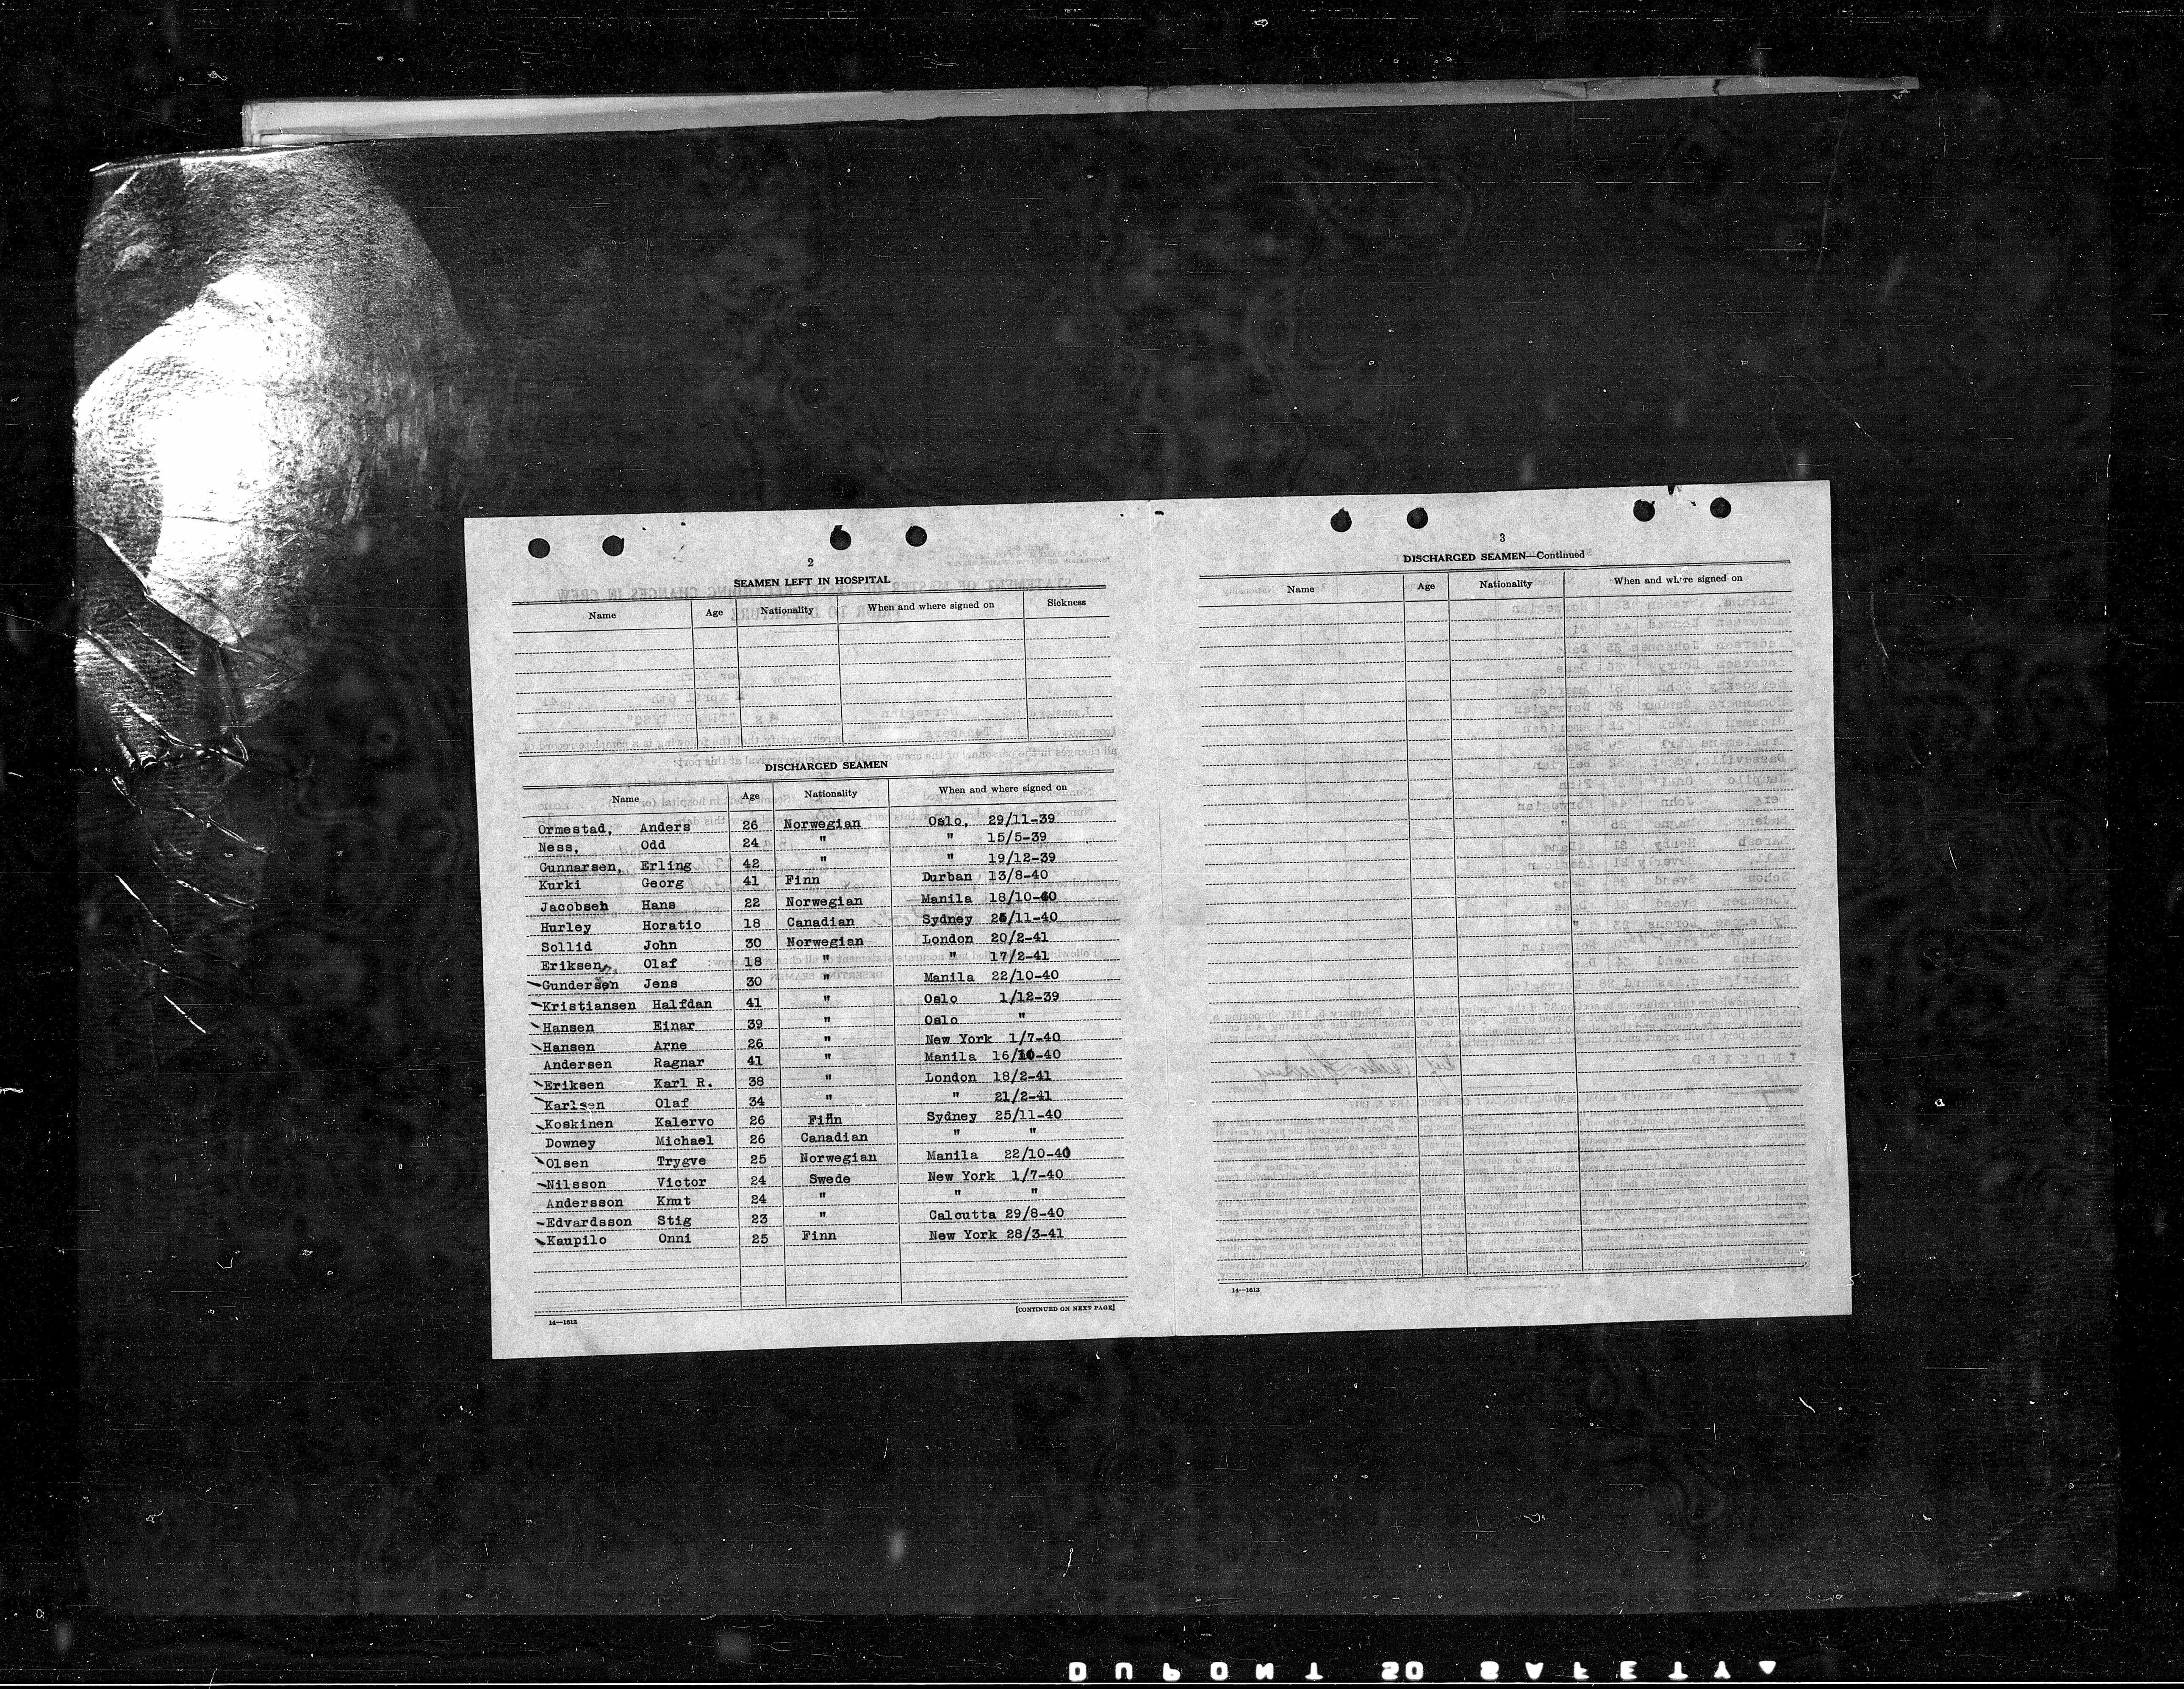 2
SEAMEN LEFT IN HOSPITAL
Name Age Nationality When and where signed on Sickness
DISCHARGED SEAMEN
Name Age Nationality When and where signed on
Ormestad, Anders 26 Norwegian Oslo, 29/11-39
Ness, Odd 24 " " 15/5-39
Gunnarsen, Erling 42 " " 19/12-39
Kurki Georg 41 Finn Durban 13/8-40
Jacobsen Hans 22 Norwegian Manila 18/10-40
Hurley Horatio 18 Canadian Sydney 25/11-40
Sollid John 30 Norwegian London 20/2-41
Eriksen, Olaf 18 " " 17/2-41
Gundersen Jens 30 " Manila 22/10-40
Kristiansen Halfdan 41 " Oslo 1/12-39
Hansen Einar 39 " Oslo "
Hansen Arne 26 " New York 1/7-40
Andersen Ragnar 41 " Manila 16/10-40
Eriksen Karl R. 38 " London 18/2-41
Karlsen Olaf 34 " " 21/2-41
Koskinen Kalervo 26 Finn Sydney 25/11-40
Downey Michael 26 Canadian " "
Olsen Trygve 25 Norwegian Manila 22/10-40
Nilsson Victor 24 Swede New York 1/7-40
Andersson Knut 24 " " "
Edvardsson Stig 23 " Calcutta 29/8-40
Kaupilo Onni 25 Finn New York 28/3-41
[CONTINUED ON NEXT PAGE]
14—1613
3
DISCHARGED SEAMEN—Continued
Name Age Nationality When and where signed on
14—1613
DUPONT 50 SAFETY